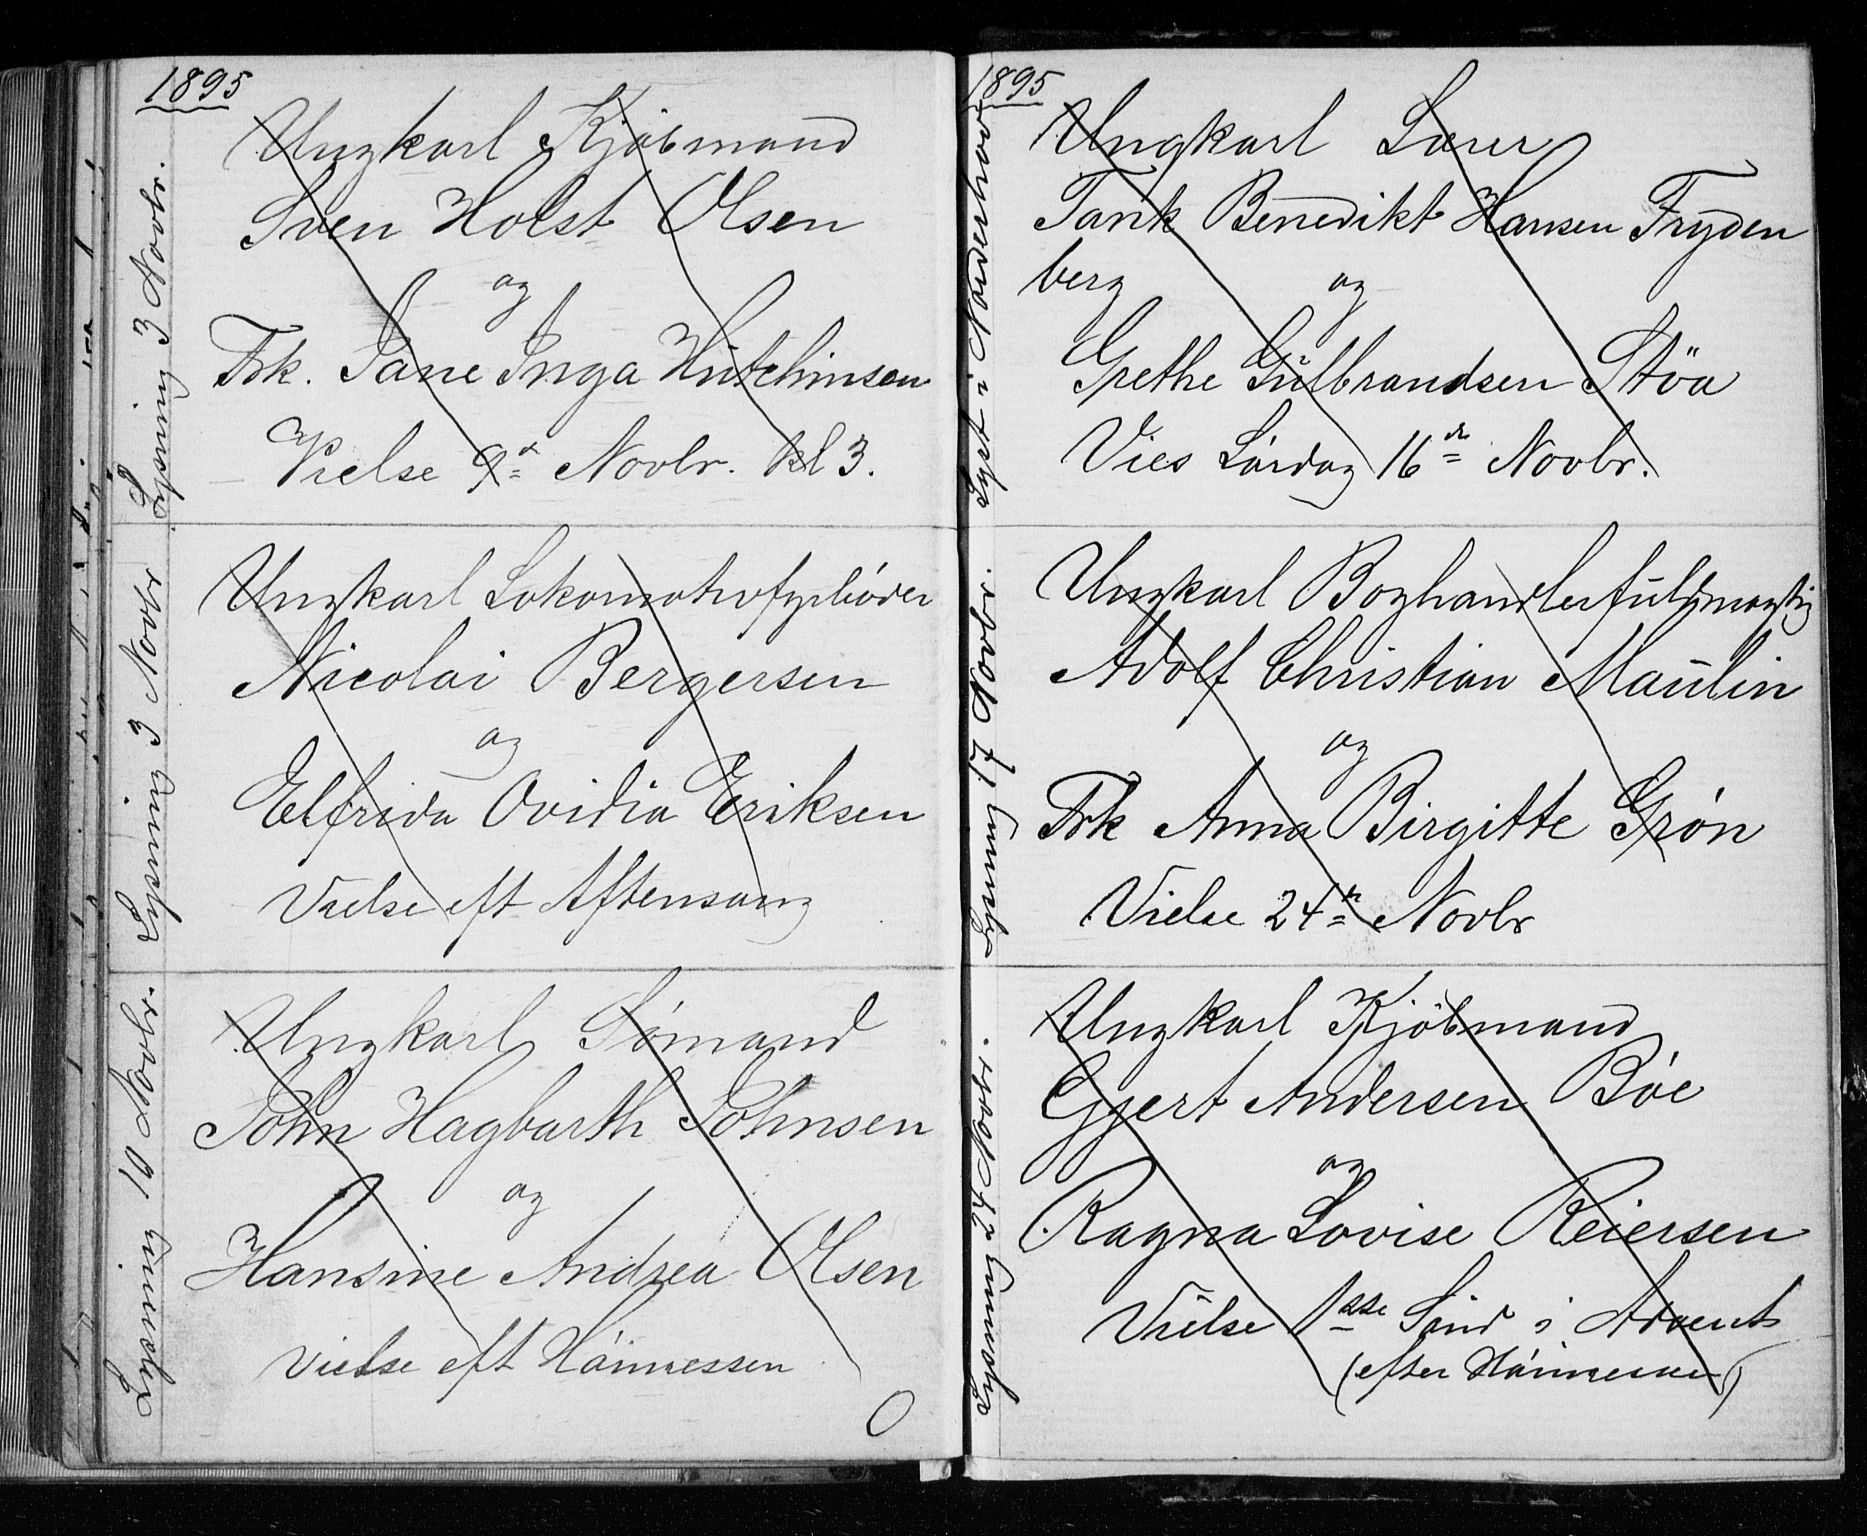 1895
Lysning 3 Novbr.
Ungkarl Kjöbmand
Sven Holst Olsen
og
Frk. Jane Inga Hutchinson
Vielse 9de Novbr. kl 3.
Lysning 3 Novbr
Ungkarl Lokomotivfyrbøder
Nicolai Bergersen
og
Elfrida Ovidia Eriksen
Vielse eft Aftensang
Lysning 10 Novbr.
Ungkarl Sømand
John Hagbarth Johnsen
og
Hansine Andrea Olsen
Vielse eft Høimessen
1895
Lyst i Nonderhoved
Ungkarl Lærer
Tank Benedikt Hansen Fryden
berg og
Grethe Gulbrandsen Støa
Vies Lørdag 16de Novbr.
Lysning 17 Novbr.
Ungkarl Boghandlerfuldmægtig
Adolf Christian Maulin
og
Frk Anna Birgitte Grøn
Vielse 24de Novbr
Lysning 24 Novbr.
Ungkarl Kjöbmand
Gjert Andersen Bøe
og
Ragna Lovise Reiersen
Vielse 1ste Sønd i Advent
(efter Høimessen)